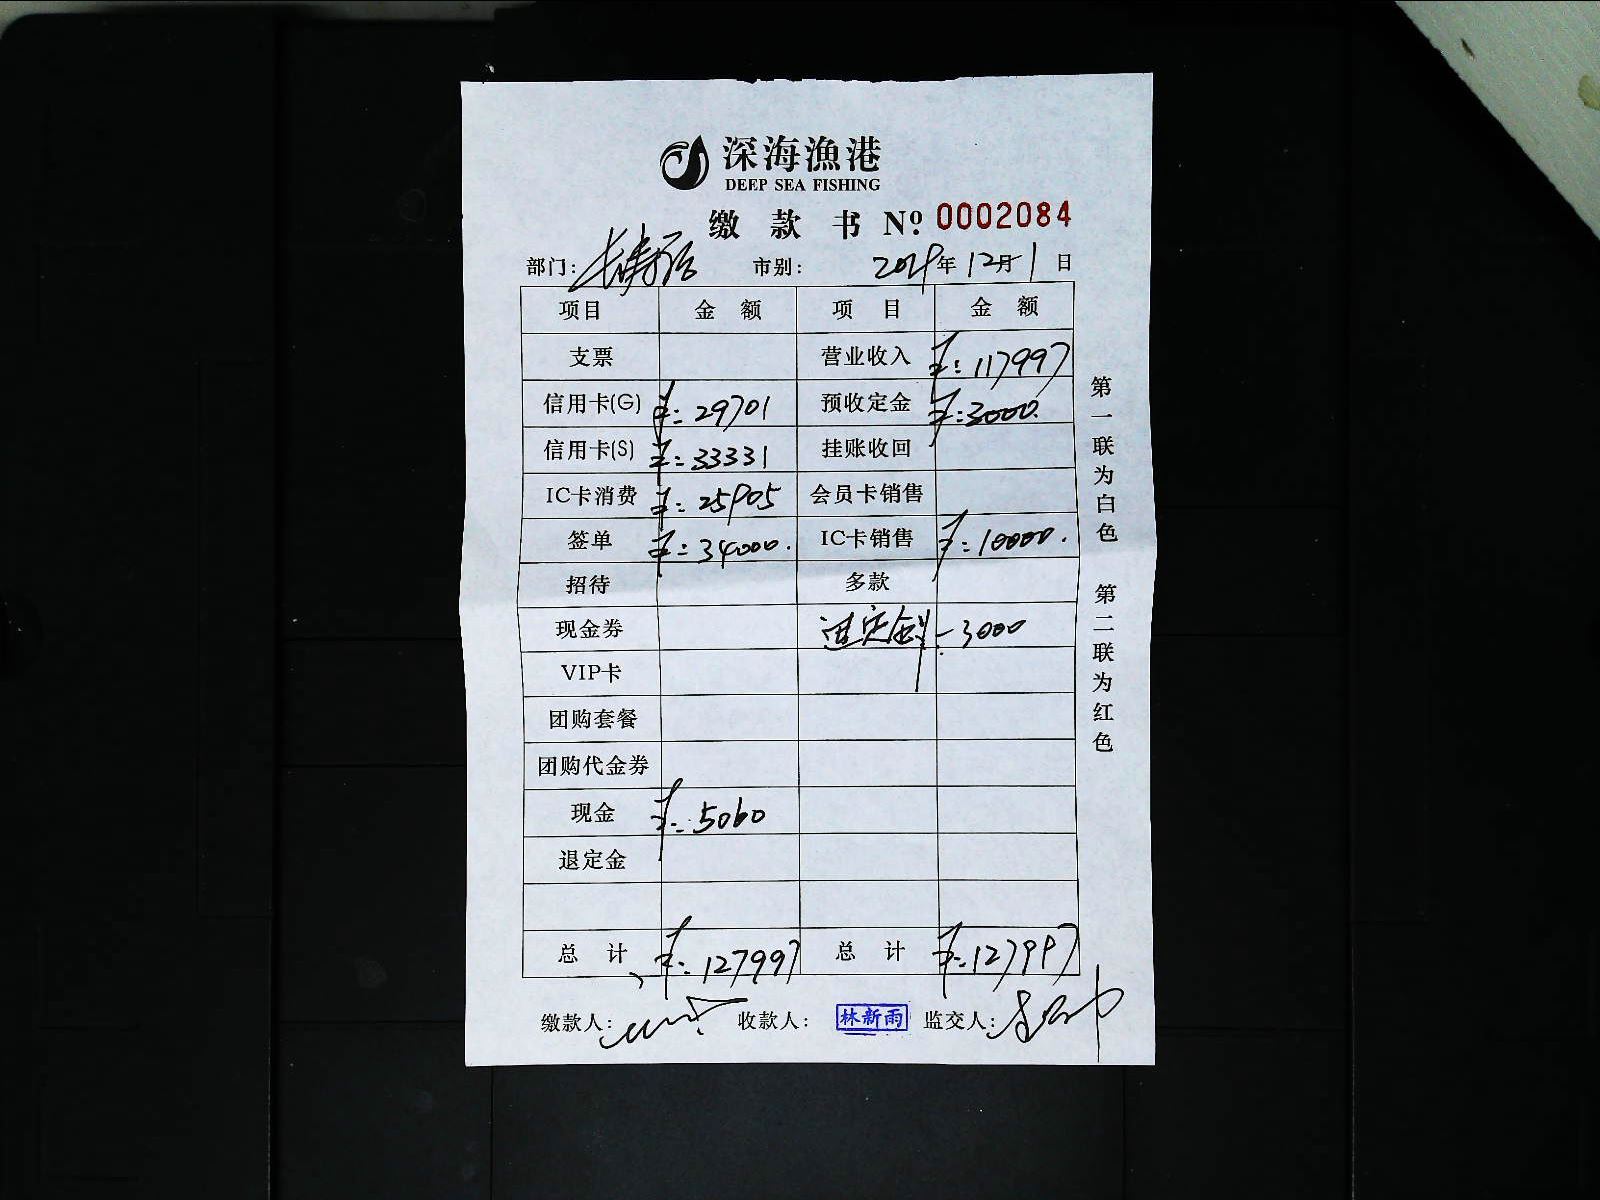 深海漁港
DEEP SEA FISHING
缴款书 Nº 0002084
部门: 市别: 年 12月 1 日
项目 金额 项目 金额
支票 营业收入 ¥: 117997
信用卡(G) ¥: 29701 预收定金 ¥: 3000.
信用卡(S) ¥: 33331 挂账收回
IC卡消费 ¥: 25905 会员卡销售
签单 ¥: 34000. IC卡销售 ¥: 10000.
招待 多款
现金券 定金 -3000
VIP卡
团购套餐
团购代金券
现金 ¥: 5060
退定金
总计 ¥: 127997 总计 ¥: 127997
缴款人: 收款人: 林新雨 监交人:
第一联为白色 第二联为红色